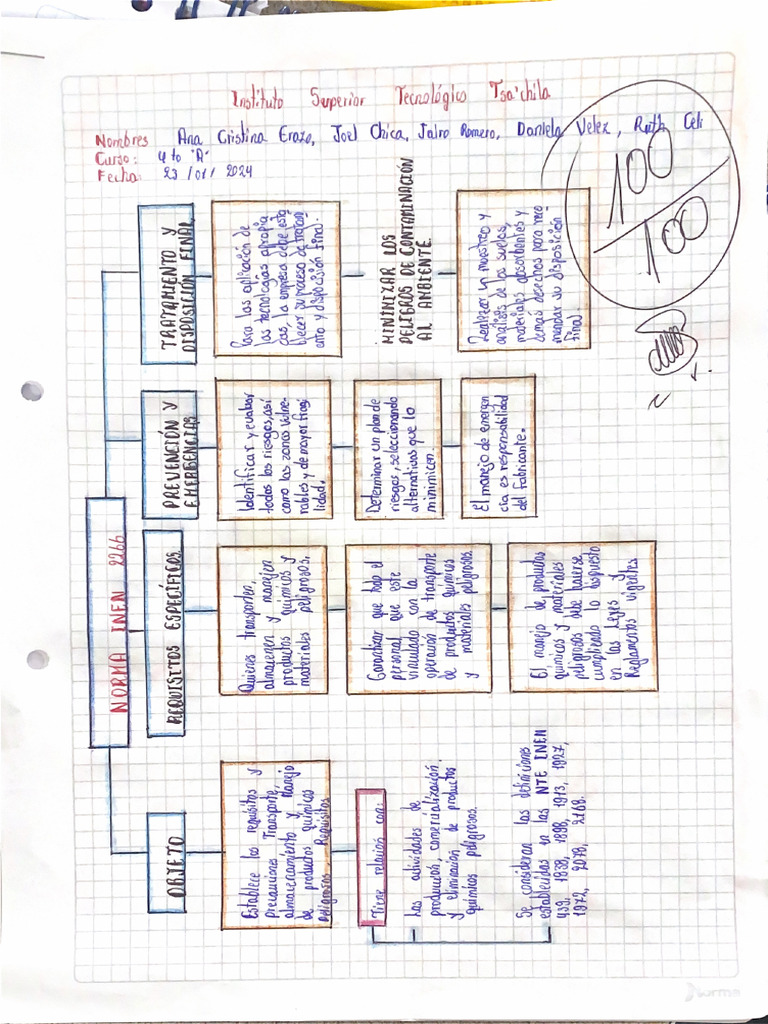 Instituto Superior Tecnológico Tsa'chila
Nombres Ana Cristina Erazo, Joel Chica, Jairo Romero, Daniela Velez, Ruth Celi
Curso: 4 to "A"
Fecha: 23 /01/ 2024
100
100
NORMA INEN 2266
OBJETO
Establece los requisitos y
precauciones Transporte,
almacenamiento y Manejo
de productos químicos
Peligrosos. Requisitos
Tiene relación con:
Las actividades de
producción, comercialización,
y eliminación de productos
químicos peligrosos.
Se consideran las definiciones
establecidas en las NTE INEN
439, 1838, 1898, 1913, 1927,
1972, 2078, 2168.
REQUISITOS ESPECÍFICOS
Quienes transporten,
almacenen y manejen
productos químicos y
materiales peligrosos.
Garantizar que todo el
personal que este
vinculado con la
operación de transporte
de productos químicos
y materiales peligrosos
El manejo de productos
químicos y materiales
peligrosos debe hacerse
cumpliendo lo dispuesto
en las Leyes y
Reglamentos vigentes
PREVENCIÓN Y
EMERGENCIAS
Identificar y evaluar
todos los riesgos, así
como las zonas vulne-
rables y de mayor fragi
lidad.
Determinar un plan de
riesgos, seleccionando
alternativas que lo
minimicen.
El manejo de emergen
cia es responsabilidad
del fabricante.
TRATAMIENTO Y
DISPOSICIÓN FINAL
Para las aplicación de
las tecnologías apropia
das, la empresa debe esta
blecer su proceso de tratam
iento y disposición final.
MINIMIZAR LOS
PELIGROS DE CONTAMINACIÓN
AL AMBIENTE.
Realizar un muestreo y
análisis de los suelos,
materiales absorbentes y
demás desechos para reco
mendar su disposición
final
Norma